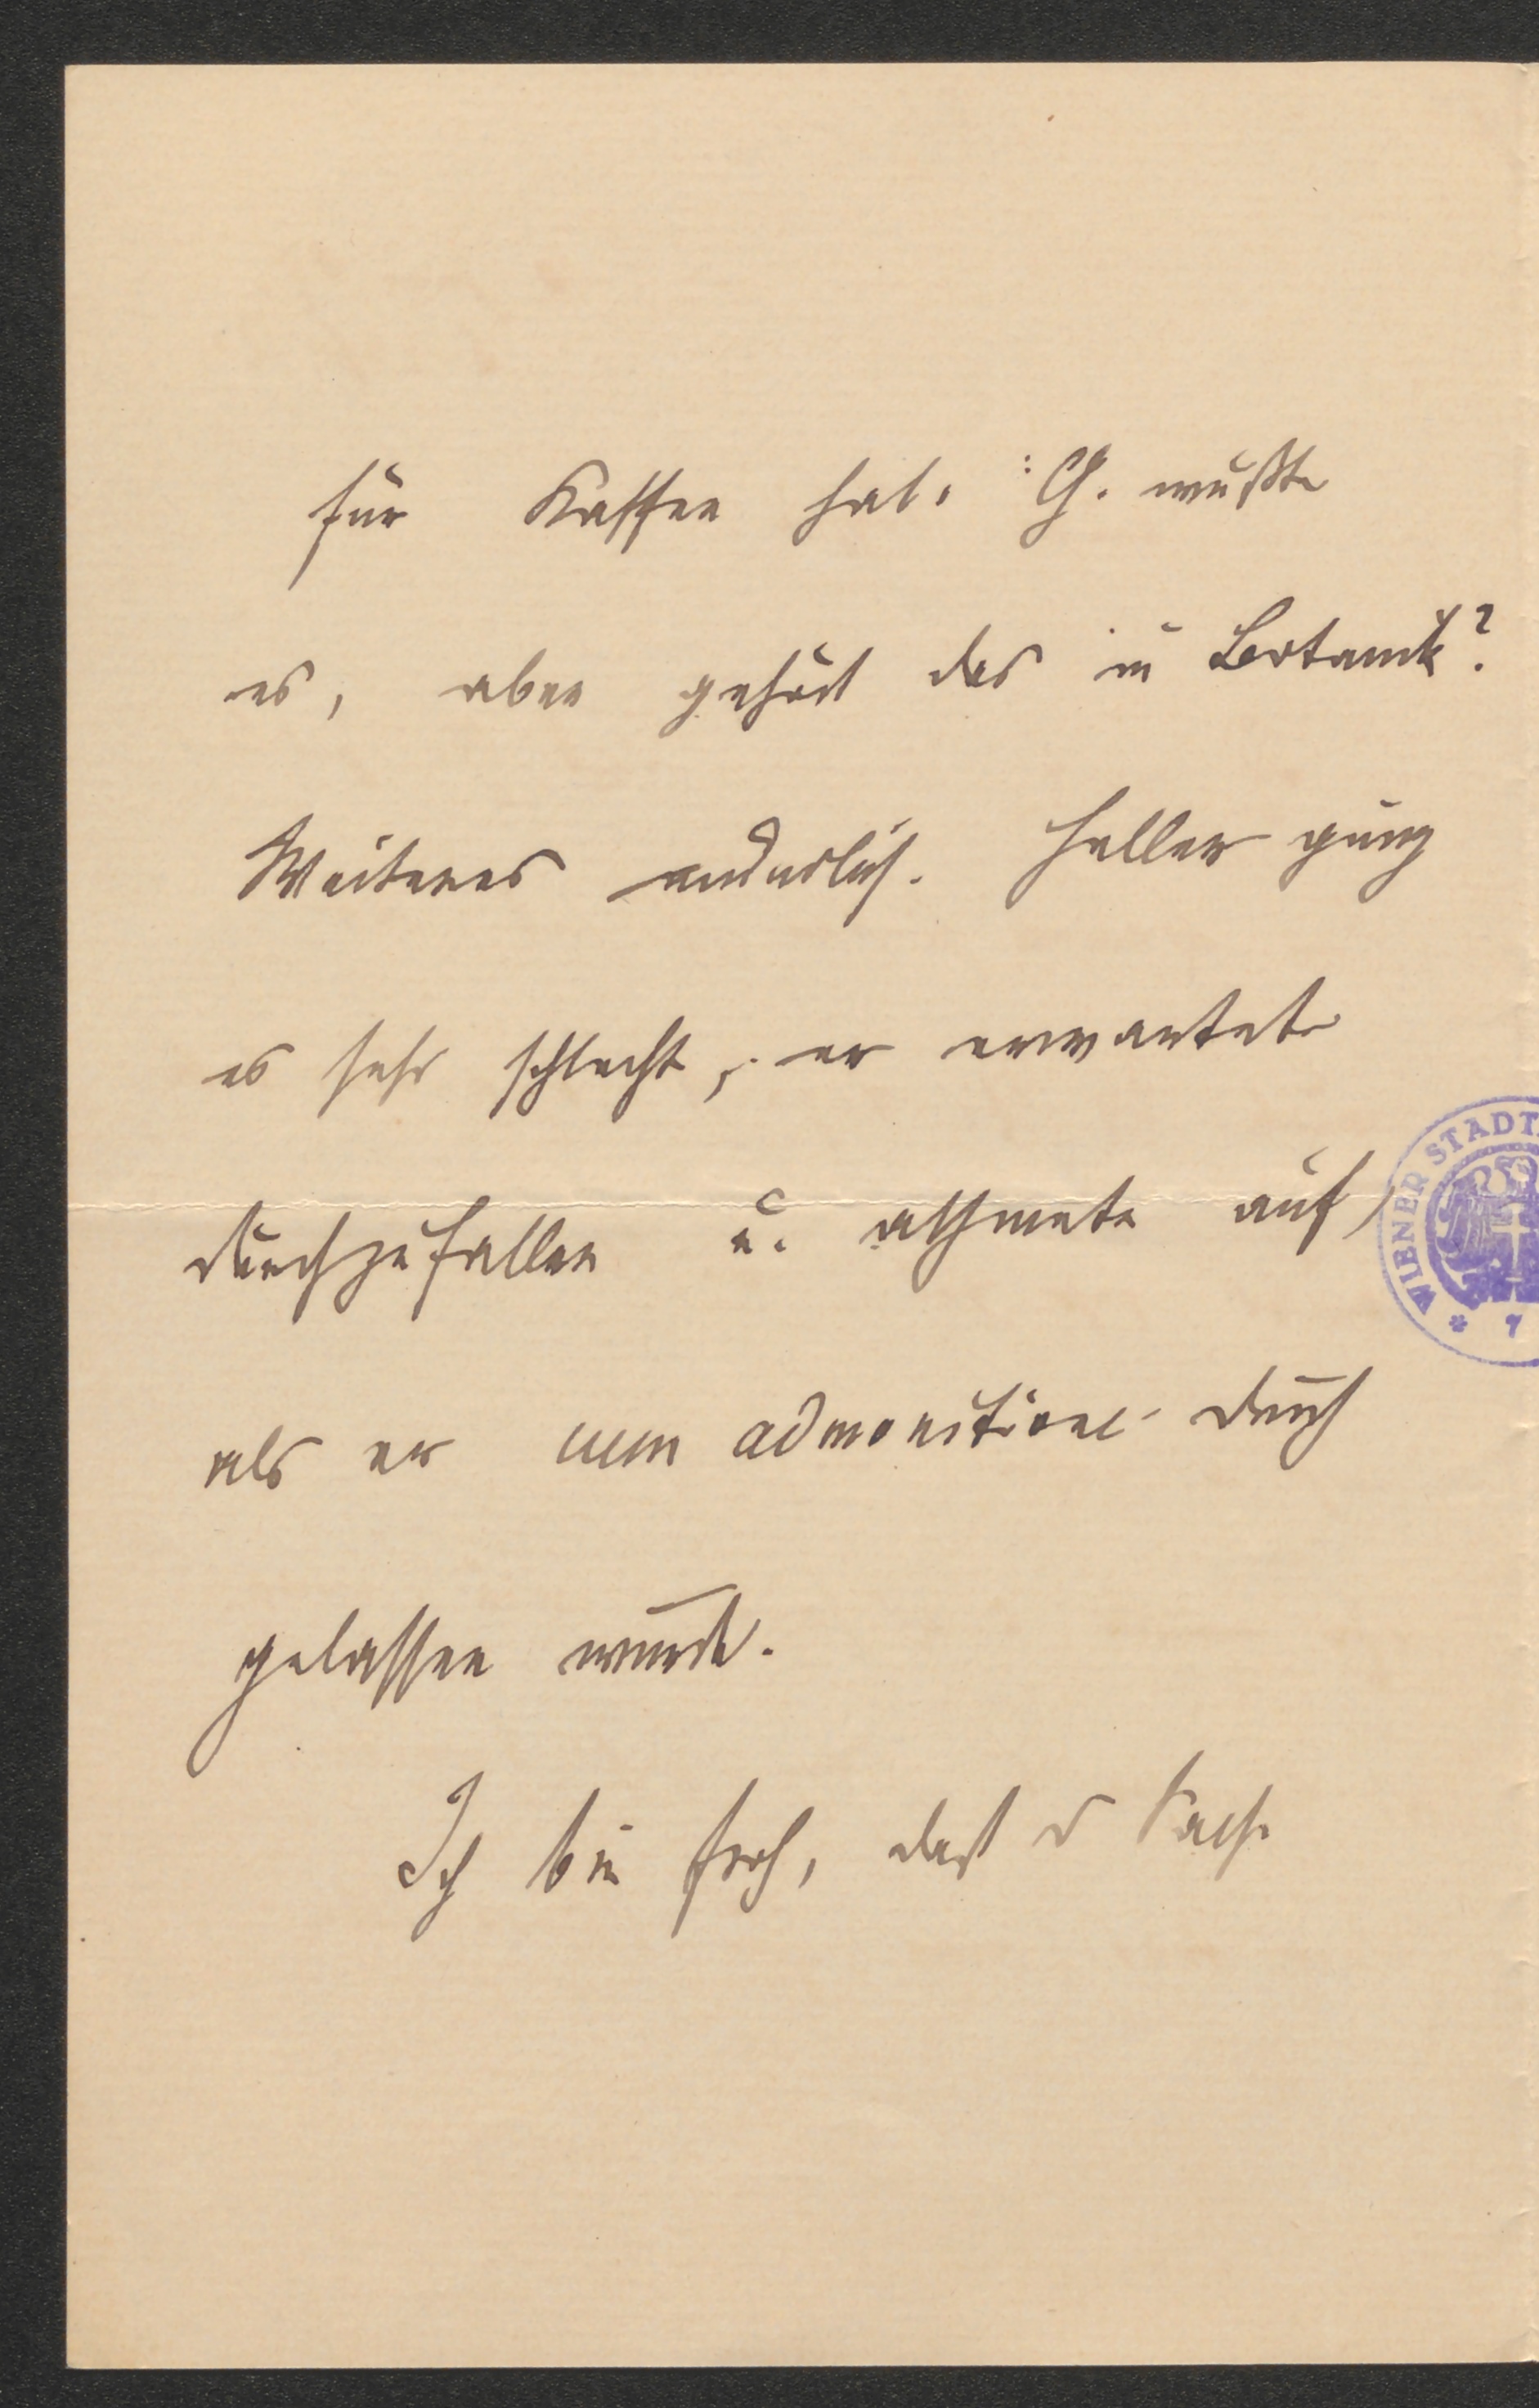 für Kaffee hab. G. wußte
es, aber gehört das in Botanik?
Weiteres mündlich. Haller ging
es sehr schlecht, er erwartete
durchzufallen u. athmete auf,
als er cum admonitione durch
gelassen wurde.
Ich bin froh, daß d Sache
WIENER STADT
* 7